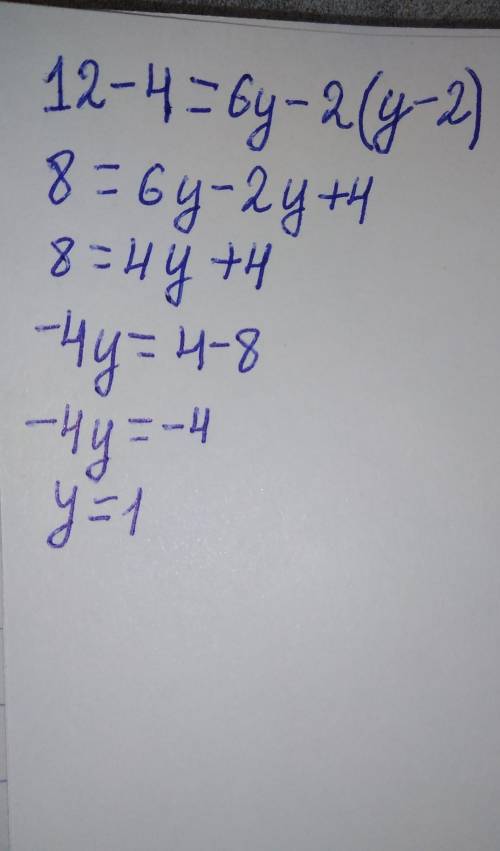 12-4=6y-2(y-2)
8=6y-2y+4
8=4y+4
-4y=4-8
-4y=-4
y=1